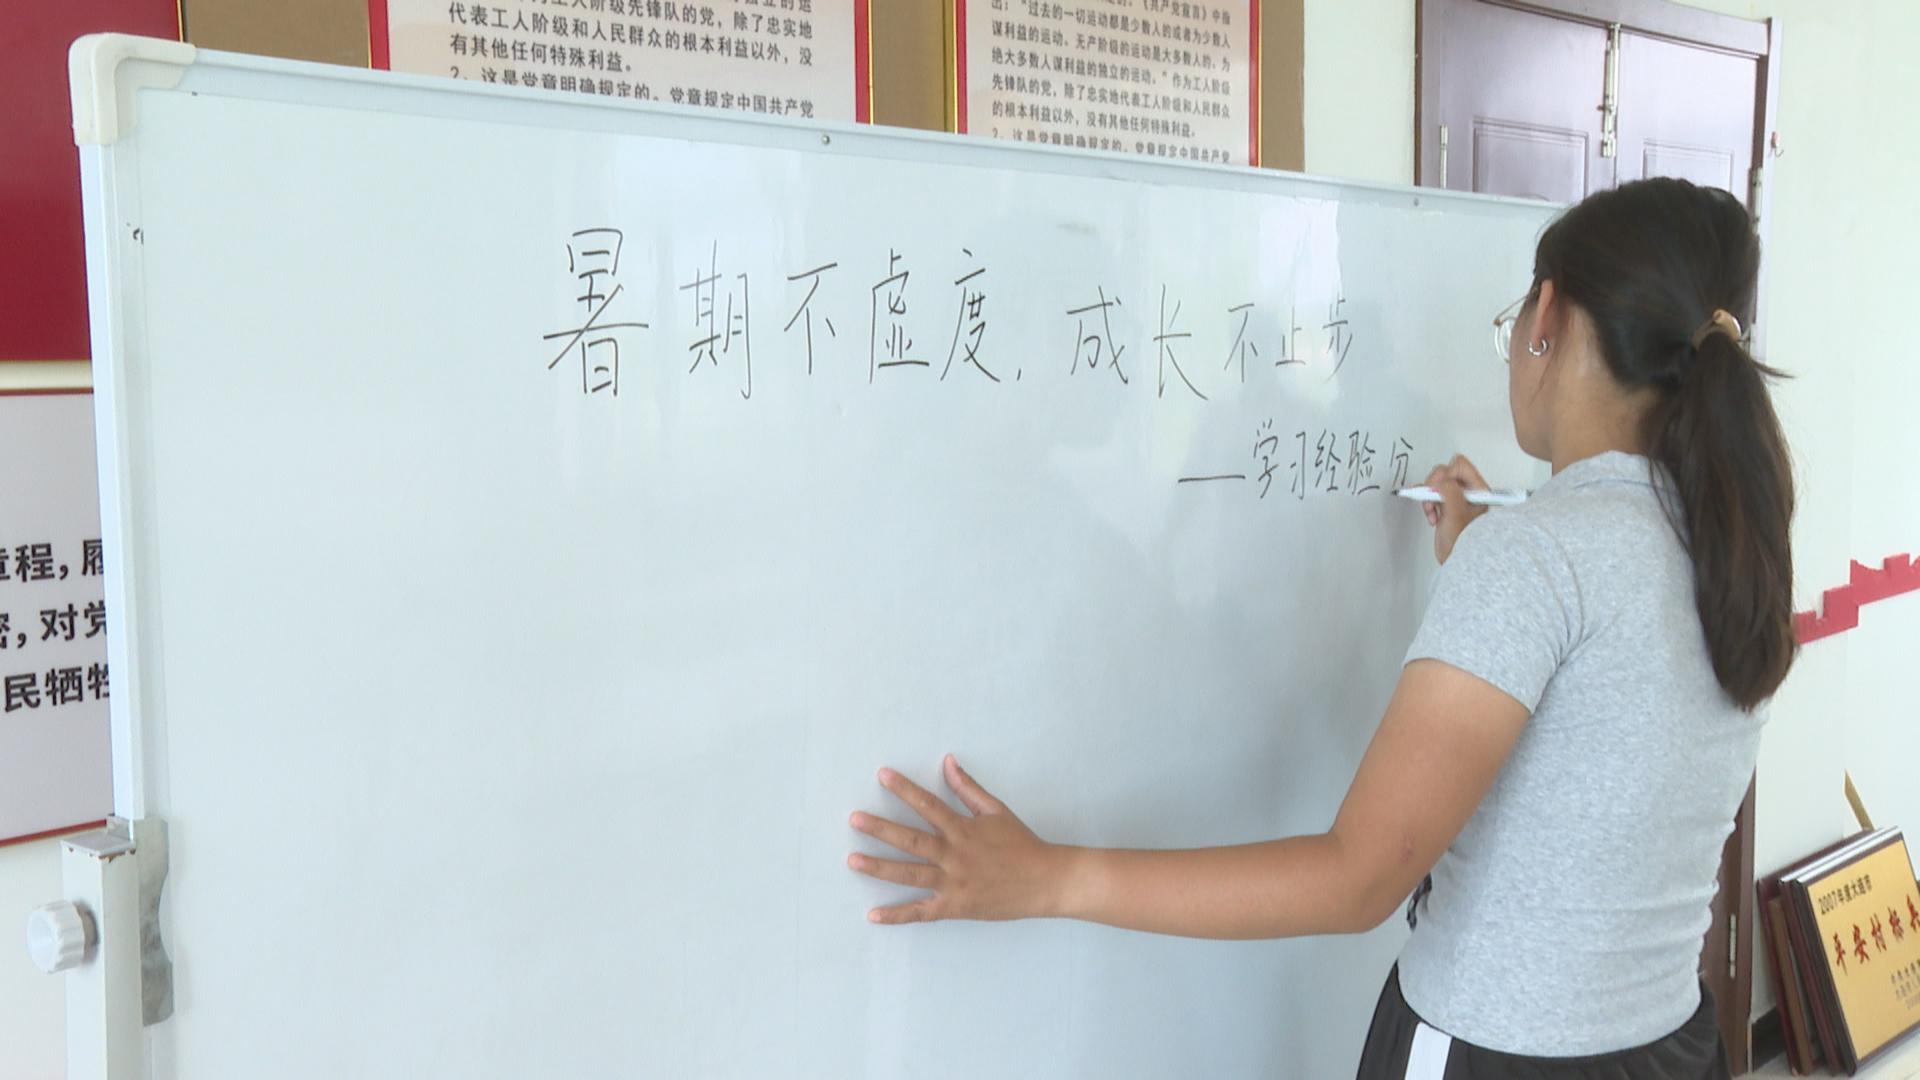 代表工人阶级和人民群众的根本利益以外，没
有其他任何特殊利益。
2、这是党章明确规定的。党章规定中国共产党
出：“过去的一切运动都是少数人的或者为少数人
谋利益的运动、无产阶级的运动是大多数人的、为
绝大多数人谋利益的独立的运动。”作为工人阶级
先锋队的党，除了忠实地代表工人阶级和人民群众
的根本利益以外，没有其他任何特殊利益。
2、这是党章明确规定的。党章规定中国共产党
暑期不虚度，成长不止步
—学习经验分
章程，履
密，对党
民牺牲
2007年度大连市
平安村标兵